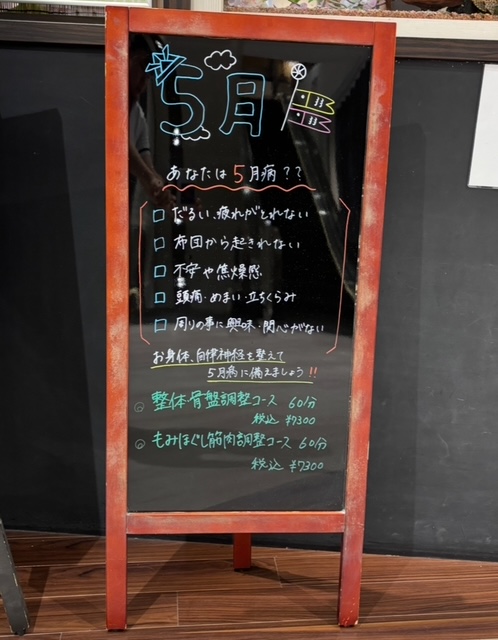 5月
あなたは5月病??
□ だるい、疲れがとれない
□ 布団から起きれない
□ 不安や焦燥感
□ 頭痛・めまい・立ちくらみ
□ 周りの事に興味・関心がない
お身体、自律神経を整えて
5月病に備えましょう!!
◎ 整体骨盤調整コース 60分
税込 ¥7300
◎ もみほぐし筋肉調整コース 60分
税込 ¥7300